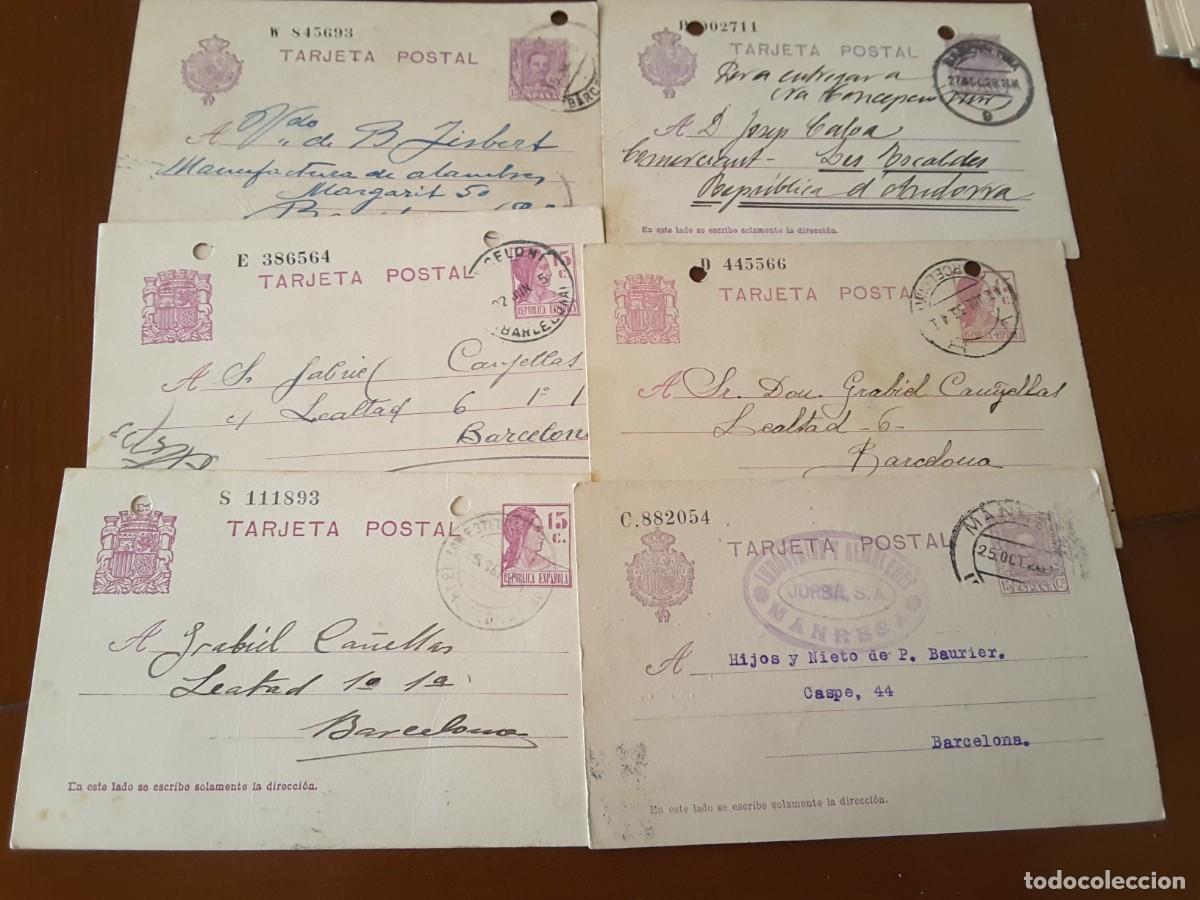 W 845693
TARJETA POSTAL
15 ESPAÑA
A Vda
de B Jisbert
Manufactura de alambres
Margarit 50
002711
TARJETA POSTAL
BARCELONA
9
Para entregar a
A D. Josep Calva
Comerciant - Les Escaldes
República d'Andorra
En este lado se escribe solamente la dirección.
E 386564
TARJETA POSTAL
15 C.
REPUBLICA ESPAÑOLA
22 JUN
A Sr Gabriel Cañellas
c/ Lealtad 6 1º 1
Barcelon
D 445566
TARJETA POSTAL
A Sr. Don Grabiel Cañellas
Lealtad -6-
Barcelona
S 111893
TARJETA POSTAL
15 C.
REPUBLICA ESPAÑOLA
A Grabiel Cañellas
Leatad 1º 1ª
Barcelona
En este lado se escribe solamente la dirección.
C.882054
TARJETA POSTAL
25.OCT.2
15 ESPAÑA Cs
JORBA, S. A.
MANRESA
A Hijos y Nieto de P. Baurier.
Caspe, 44
Barcelona.
En este lado se escribe solamente la dirección.
todocoleccion